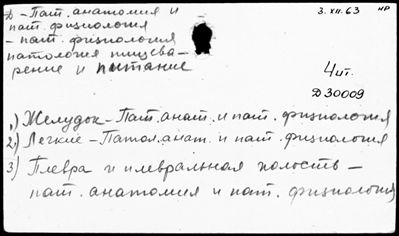 D – Пат. анатомия и
пат. физиология
– пат. физиология
патология пищева-
рение и питание
3.XII.63 НР
4 шт.
D30009
1) Желудок – Пат. анат. и пат. физиология
2) Легкие – Патол. анат. и пат. физиология
3) Плевра и плевральная полость –
пат. анатомия и пат. физиология